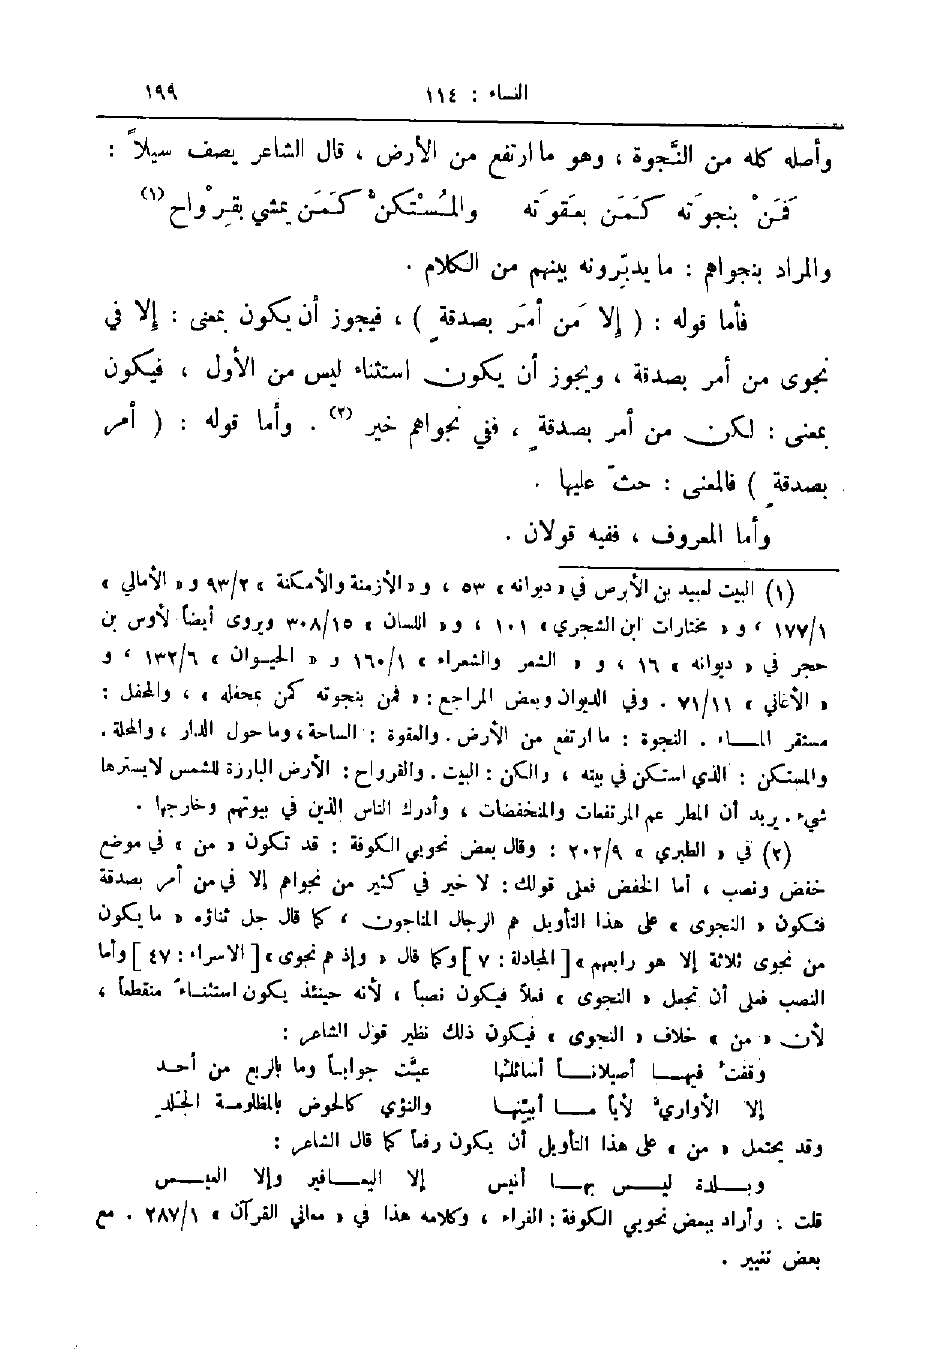 النساء : ١١٤ ١٩٩
وأصله كله من النَّجوة ، وهو ما ارتفع من الأرض ، قال الشاعر يصف سيلاً :
فَمَنْ بنجوَته كمَن بعَقوَته والمُسْتكنُّ كمَن يمشي بقِرْواح (١)
والمراد بنجواهم : ما يدبِّرونه بينهم من الكلام .
فأما قوله : ( إلا مَن أمَرَ بصدقةٍ ) ، فيجوز أن يكون بمعنى : إلا في
نجوى من أمر بصدقة ، ويجوز أن يكون استثناء ليس من الأول ، فيكون
بمعنى : لكن من أمر بصدقةٍ ، ففي نجواهم خير (٢) . وأما قوله : ( أمر
بصدقةٍ ) فالمعنى : حثّ عليها .
وأما المعروف ، ففيه قولان .
(١) البيت لعبيد بن الأبرص في « ديوانه » ٥٣ ، و « الأزمنة والأمكنة » ٩٣/٢ و « الأمالي »
١٧٧/١ ، و « مختارات ابن الشجري » ١٠١ ، و « اللسان » ٣٠٨/١٥ ويروى أيضاً لأوس بن
حجر في « ديوانه » ١٦ ، و « الشعر والشعراء » ١٦٠/١ و « الحيوان » ١٣٢/٦ ، و
« الأغاني » ٧١/١١ . وفي الديوان وبعض المراجع : « فمن بنجوته كمن بمحفله » ، والمحفل :
مستقر الماء . النجوة : ما ارتفع من الأرض . والعقوة : الساحة ، وما حول الدار ، والمحلة .
والمستكن : الذي استكن في بيته ، والكن : البيت . والقرواح : الأرض البارزة للشمس لا يسترها
شيء . يريد أن المطر عم المرتفعات والمنخفضات ، وأدرك الناس الذين في بيوتهم وخارجها .
(٢) في « الطبري » ٢٠٢/٩ : وقال بعض نحويي الكوفة : قد تكون « من » في موضع
خفض ونصب ، أما الخفض فعلى قولك : لا خير في كثير من نجواهم إلا في من أمر بصدقة
فتكون « النجوى » على هذا التأويل هم الرجال المتناجون ، كما قال جل ثناؤه « ما يكون
من نجوى ثلاثة إلا هو رابعهم » [ المجادلة : ٧ ] وكما قال « وإذ هم نجوى » [ الاسراء : ٤٧ ] وأما
النصب فعلى أن تجعل « النجوى » فعلاً فيكون نصباً ، لأنه حينئذ يكون استثناءً منقطعاً ،
لأن « من » خلاف « النجوى » فيكون ذلك نظير قول الشاعر :
وقفتُ فيها أصيلاناً أسائلها عيَّت جواباً وما بالربع من أحد
إلا الأواريُّ لأياً ما أبيّنها والنؤي كالحوض بالمظلومة الجَلَد
وقد يحتمل « من » على هذا التأويل أن يكون رفعاً كما قال الشاعر :
وبلدة ليس بها أنيس إلا اليعافير وإلا العيس
قلت : وأراد ببعض نحويي الكوفة : الفراء ، وكلامه هذا في « معاني القرآن » ٢٨٧/١ . مع
بعض تغيير .